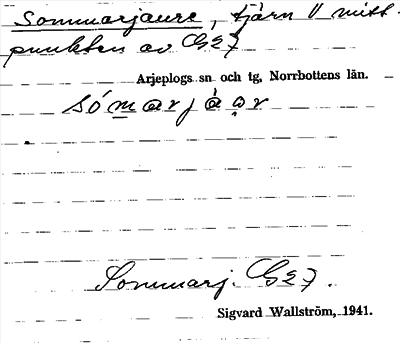 Sommarjaure, tjärn V mitt-
punkten av G27
Arjeplogs sn och tg, Norrbottens län.
sómarjàǫr
Sommarj. G27.
Sigvard Wallström, 1941.